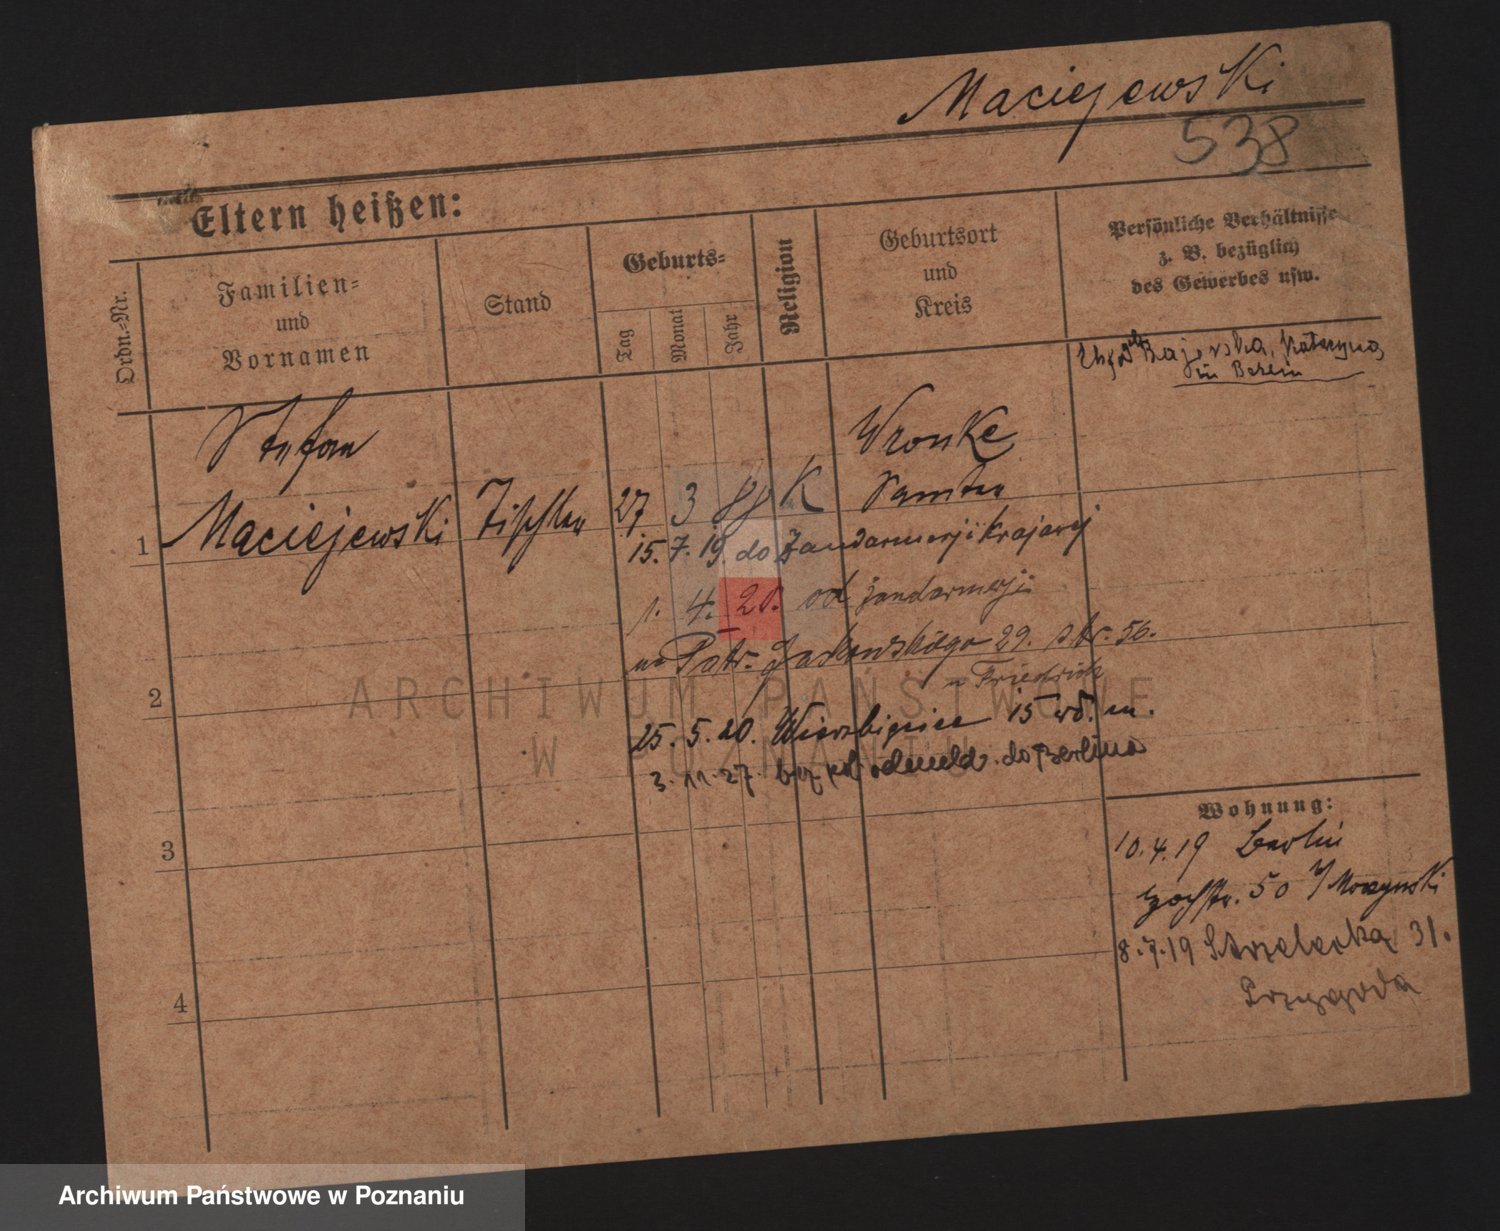 Maciejewski
538
Eltern heißen:
Ordn.-Nr.
Familien-
und
Vornamen
Stand
Geburts-
Tag
Monat
Jahr
Religion
Geburtsort
und
Kreis
Persönliche Verhältnisse
z. B. bezüglich
des Gewerbes usw.
Katarzyna
in Berlin
Stefan
Wronke
1 Maciejewski Tischler 27 3 K Samter
15. 7. 19 do Żandarmerji Krajowej
1. 4. 20. od żandarmerji
na Patr. Jackowskiego 29. str. 56.
Friedrich
2
25. 5. 20. Wierzbięcice 15 m.
3. 11. 27. bez odmeld. do Berlina
3
4
Wohnung:
10.4.19 Berlin
50 Moczynski
8.7.19 Strzelecka 31.
Przygoda
ARCHIWUM PAŃSTWOWE
W POZNANIU
Archiwum Państwowe w Poznaniu